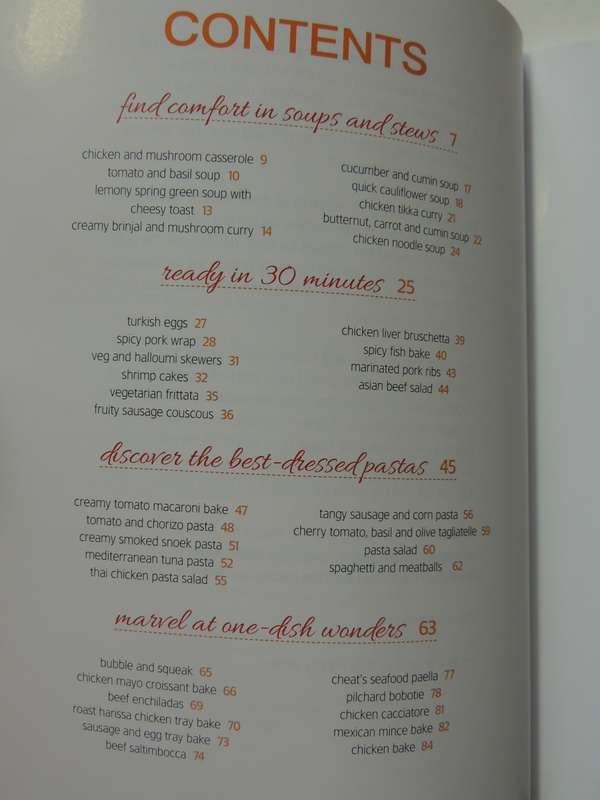 CONTENTS
find comfort in soups and stews 7
chicken and mushroom casserole 9
tomato and basil soup 10
lemony spring green soup with
cheesy toast 13
creamy brinjal and mushroom curry 14
cucumber and cumin soup 17
quick cauliflower soup 18
chicken tikka curry 21
butternut, carrot and cumin soup 22
chicken noodle soup 24
ready in 30 minutes 25
turkish eggs 27
spicy pork wrap 28
veg and halloumi skewers 31
shrimp cakes 32
vegetarian frittata 35
fruity sausage couscous 36
chicken liver bruschetta 39
spicy fish bake 40
marinated pork ribs 43
asian beef salad 44
discover the best-dressed pastas 45
creamy tomato macaroni bake 47
tomato and chorizo pasta 48
creamy smoked snoek pasta 51
mediterranean tuna pasta 52
thai chicken pasta salad 55
tangy sausage and corn pasta 56
cherry tomato, basil and olive tagliatelle 59
pasta salad 60
spaghetti and meatballs 62
marvel at one-dish wonders 63
bubble and squeak 65
chicken mayo croissant bake 66
beef enchiladas 69
roast harissa chicken tray bake 70
sausage and egg tray bake 73
beef saltimbocca 74
cheat's seafood paella 77
pilchard bobotie 78
chicken cacciatore 81
mexican mince bake 82
chicken bake 84